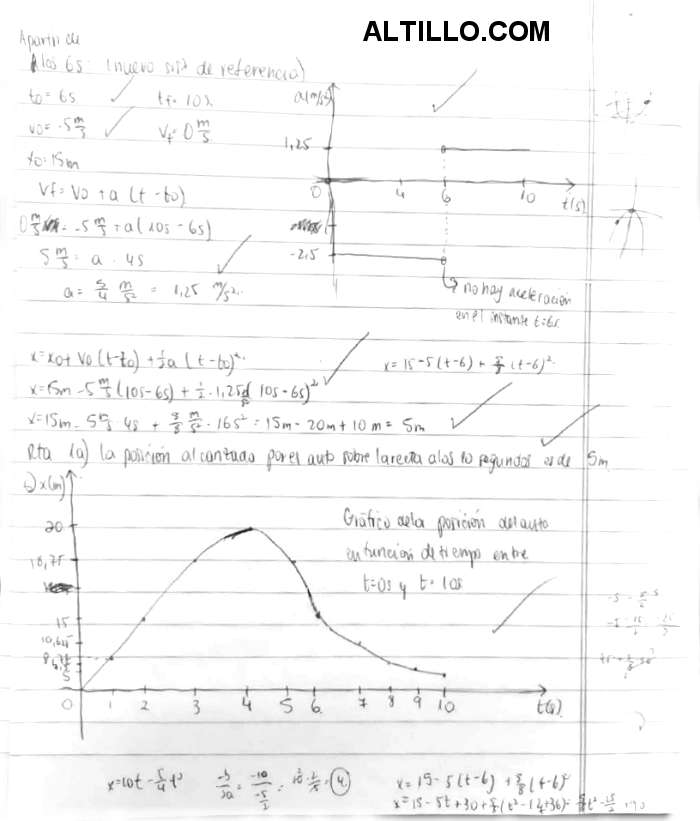 ALTILLO.COM
Apartir de
A los 6s: (nuevo sist de referencia)
t0 = 6s tf = 10s
v0 = -5 m/s Vf = 0 m/s
x0 = 15m
Vf = V0 + a (t - t0)
0 m/s = -5 m/s + a (10s - 6s)
5 m/s = a . 4s
a = 5/4 m/s² = 1,25 m/s²
a (m/s²)
1,25
0 4 6 10 t(s)
-2,5
no hay aceleración
en el instante t=6s
x = x0 + V0 (t-t0) + ½a (t - t0)²
x = 15 - 5(t-6) + (t-6)²
x = 15m - 5 m/s (10s - 6s) + ½ . 1,25 (10s - 6s)²
x = 15m - 5 m/s 4s + m/s² . 16s² = 15m - 20m + 10m = 5m
Rta 1a) la posición alcanzada por el auto sobre la recta a los 10 segundos es de 5m
b) x(m)
20
18,75
15
10,625
5
0 1 2 3 4 5 6 7 8 9 10 t(s)
Gráfico de la posición del auto
en función de tiempo entre
t=0s y t=10s
x = 10t - 5/4 t²
-b/2a = 4
x = 15 - 5(t-6) + 5/8 (t-6)²
x = 15 - 5t + 30 + (t² - 12t + 36)